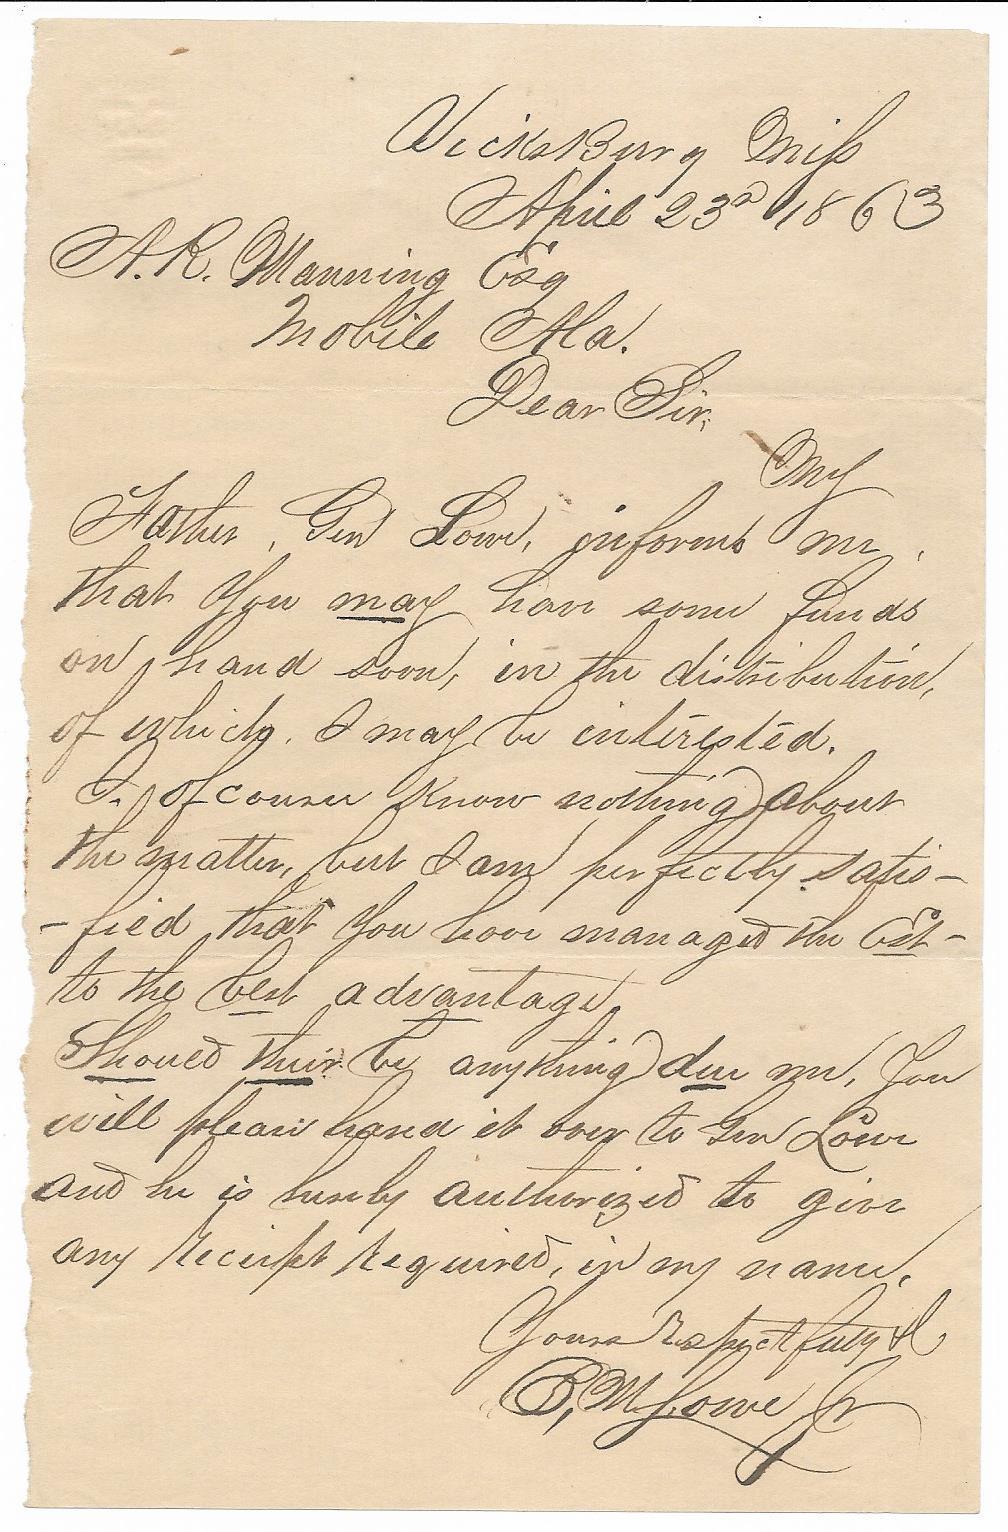 Vicksburg Miss
April 23d 1863
A. R. Manning Esq
Mobile Ala.
Dear Sir,
My
Father, Gen Lowe, informs me,
that you may have some funds
on hand soon, in the distribution,
of which, I may be interested.
I, of course know nothing about
the matter, but I am perfectly satis-
-fied that you have managed the Est-
to the best advantage.
Should their be anything due me, you
will please hand it over to Gen Lowe
and he is hereby authorized to give
any receipt required, in my name.
Yours respectfully &c
B. M. Lowe Jr